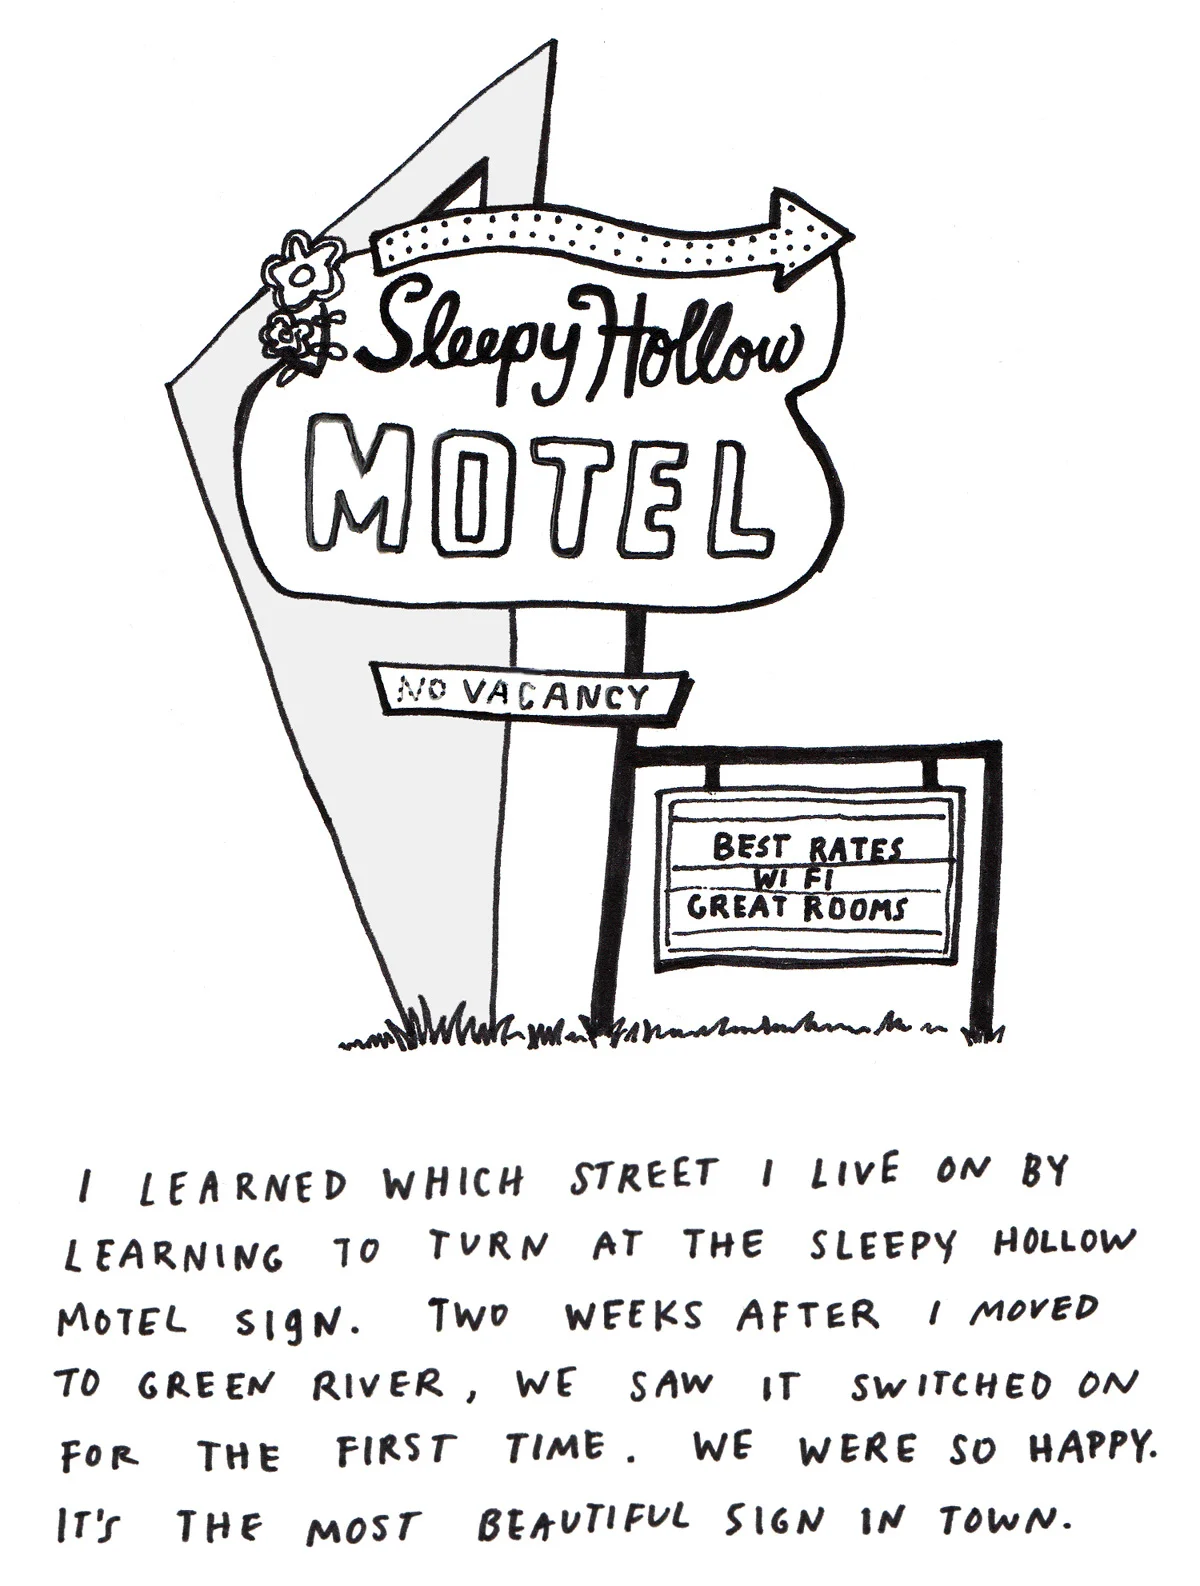 Sleepy Hollow
MOTEL
NO VACANCY
BEST RATES
WI FI
GREAT ROOMS
I LEARNED WHICH STREET I LIVE ON BY
LEARNING TO TURN AT THE SLEEPY HOLLOW
MOTEL SIGN. TWO WEEKS AFTER I MOVED
TO GREEN RIVER, WE SAW IT SWITCHED ON
FOR THE FIRST TIME. WE WERE SO HAPPY.
IT'S THE MOST BEAUTIFUL SIGN IN TOWN.